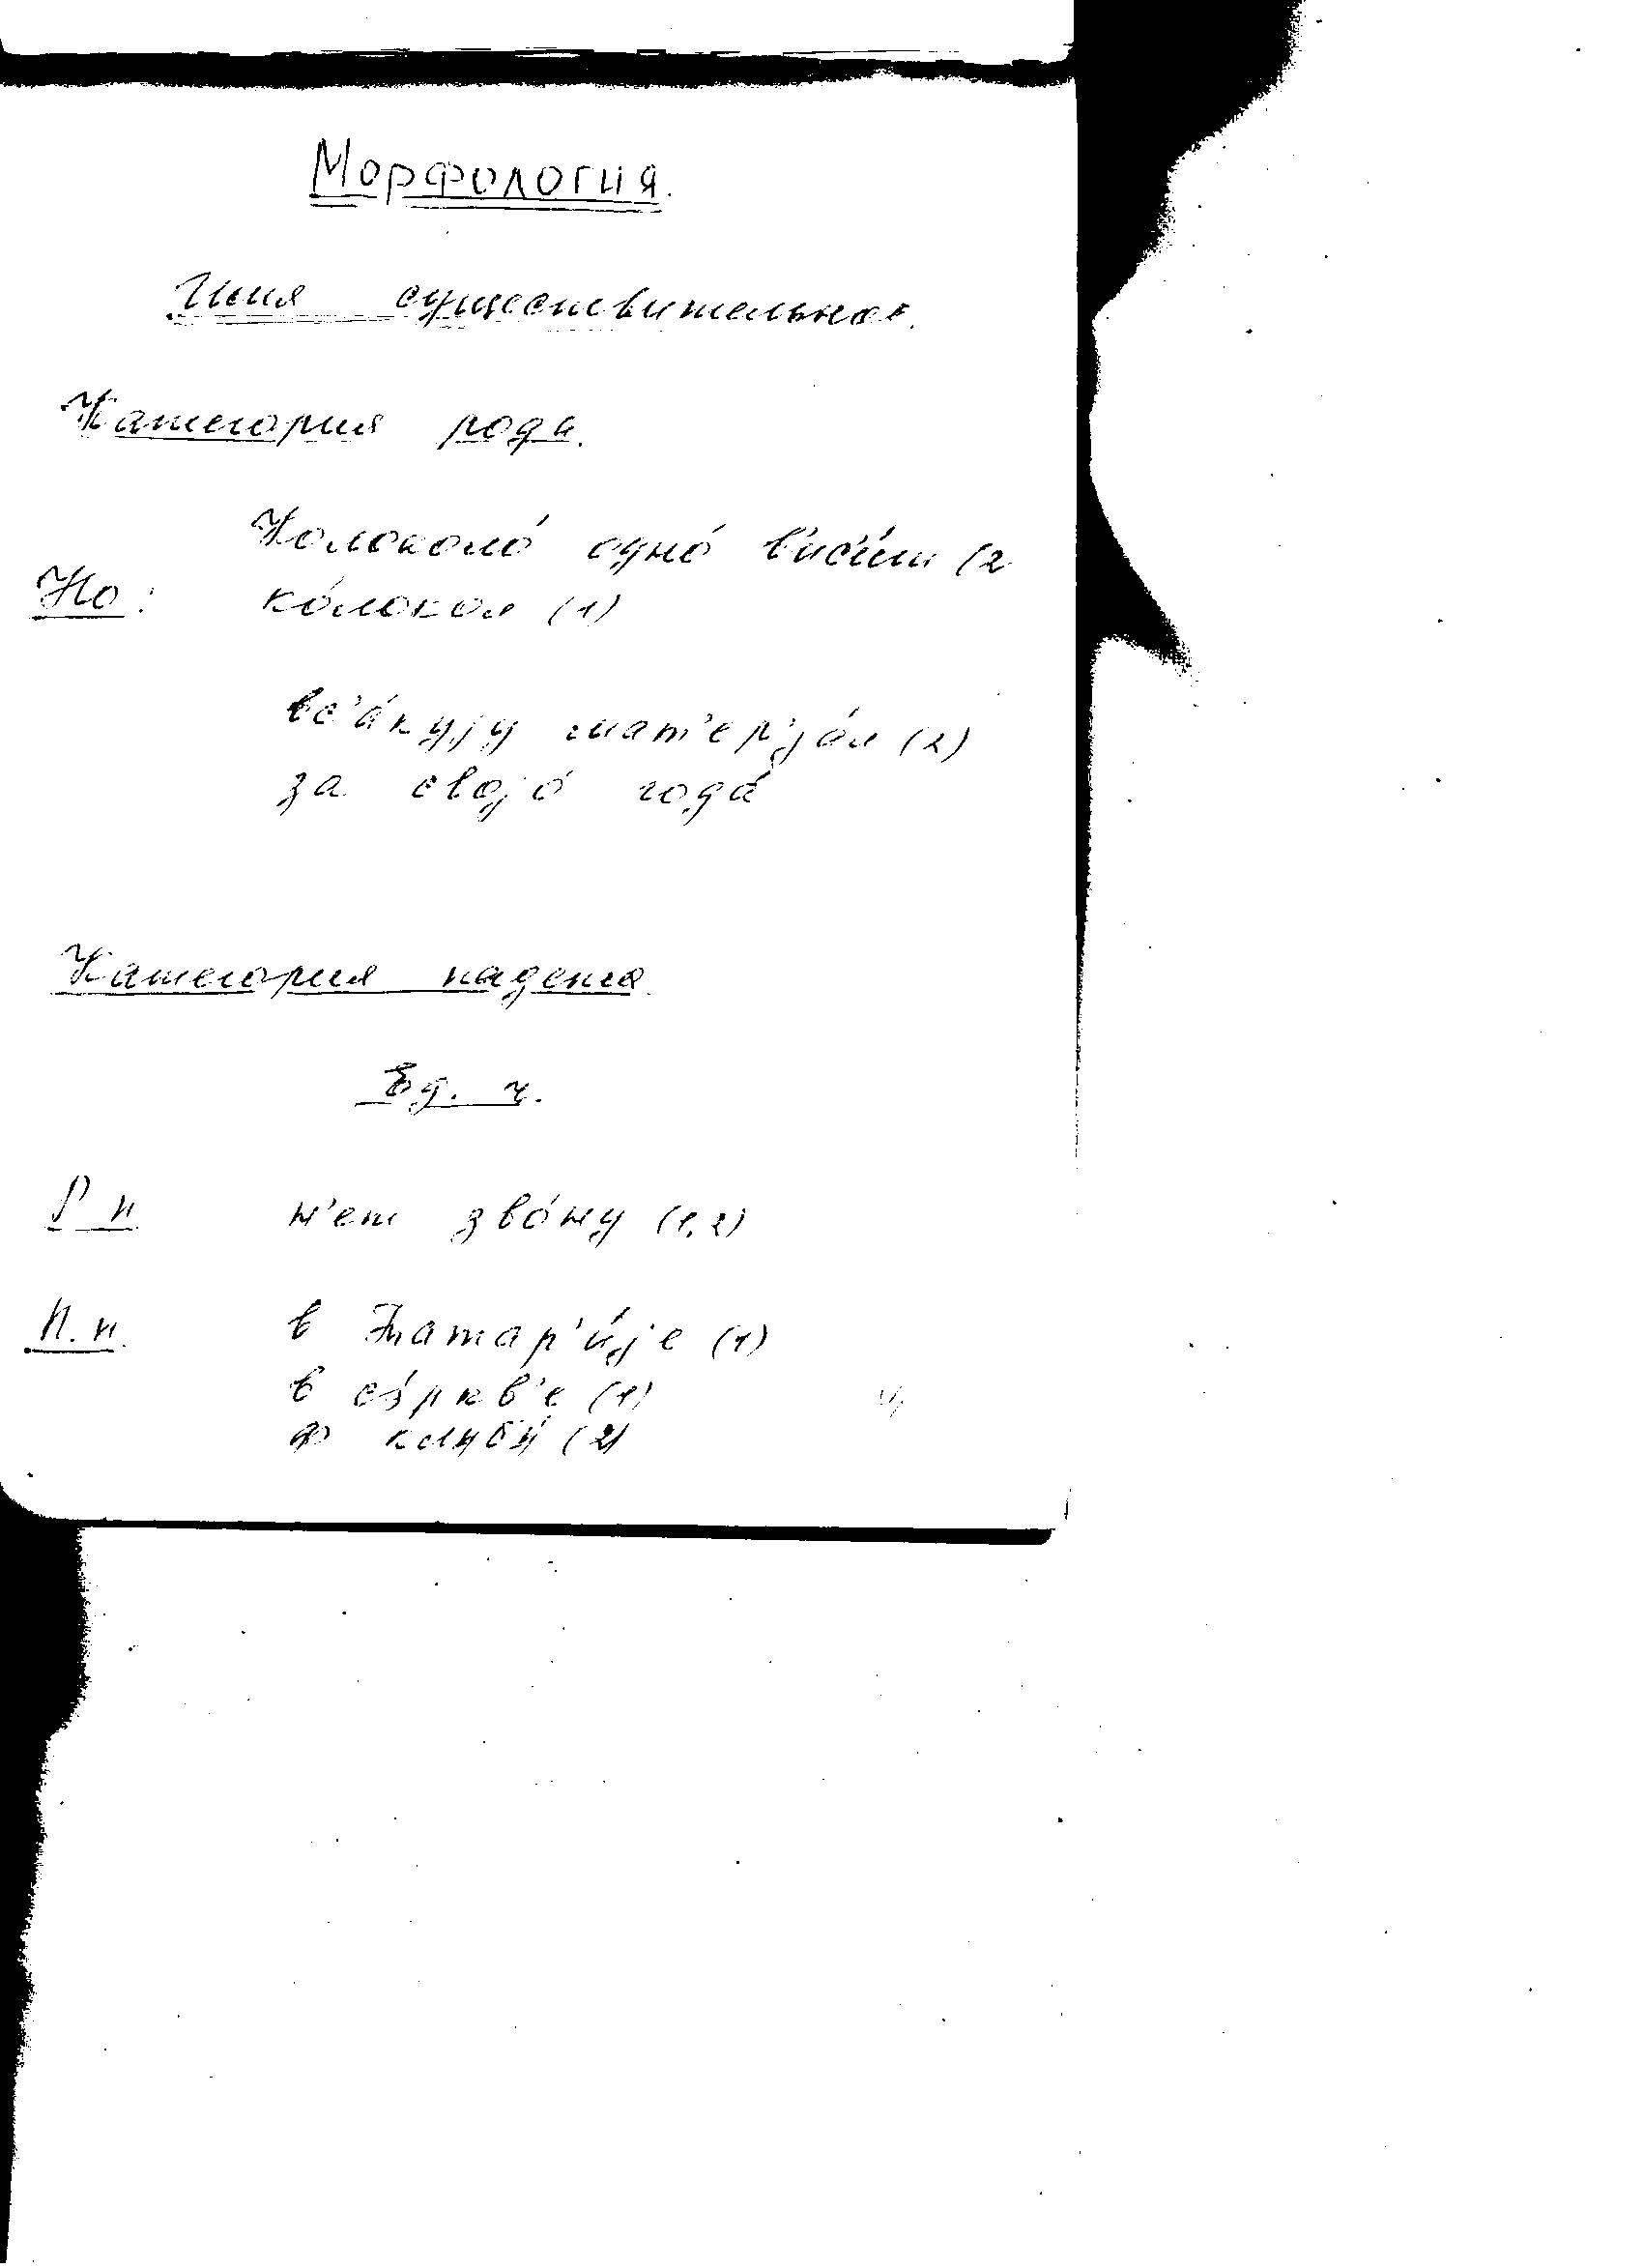 Морфология.
Имя существительное.
Категория рода.
Колоколо́ одно́ в'ис'и́т (2
Но: ко́локол (1)
вс'а́куjу мат'ер'jа́л (2)
за своjо́ года́
Категория падежа.
Ед. ч.
Р п н'ет зво́ну (1,2)
П.п. в Татар'и́jе (1)
в сэ́ркв'е (1)
ф клубу́ (2)